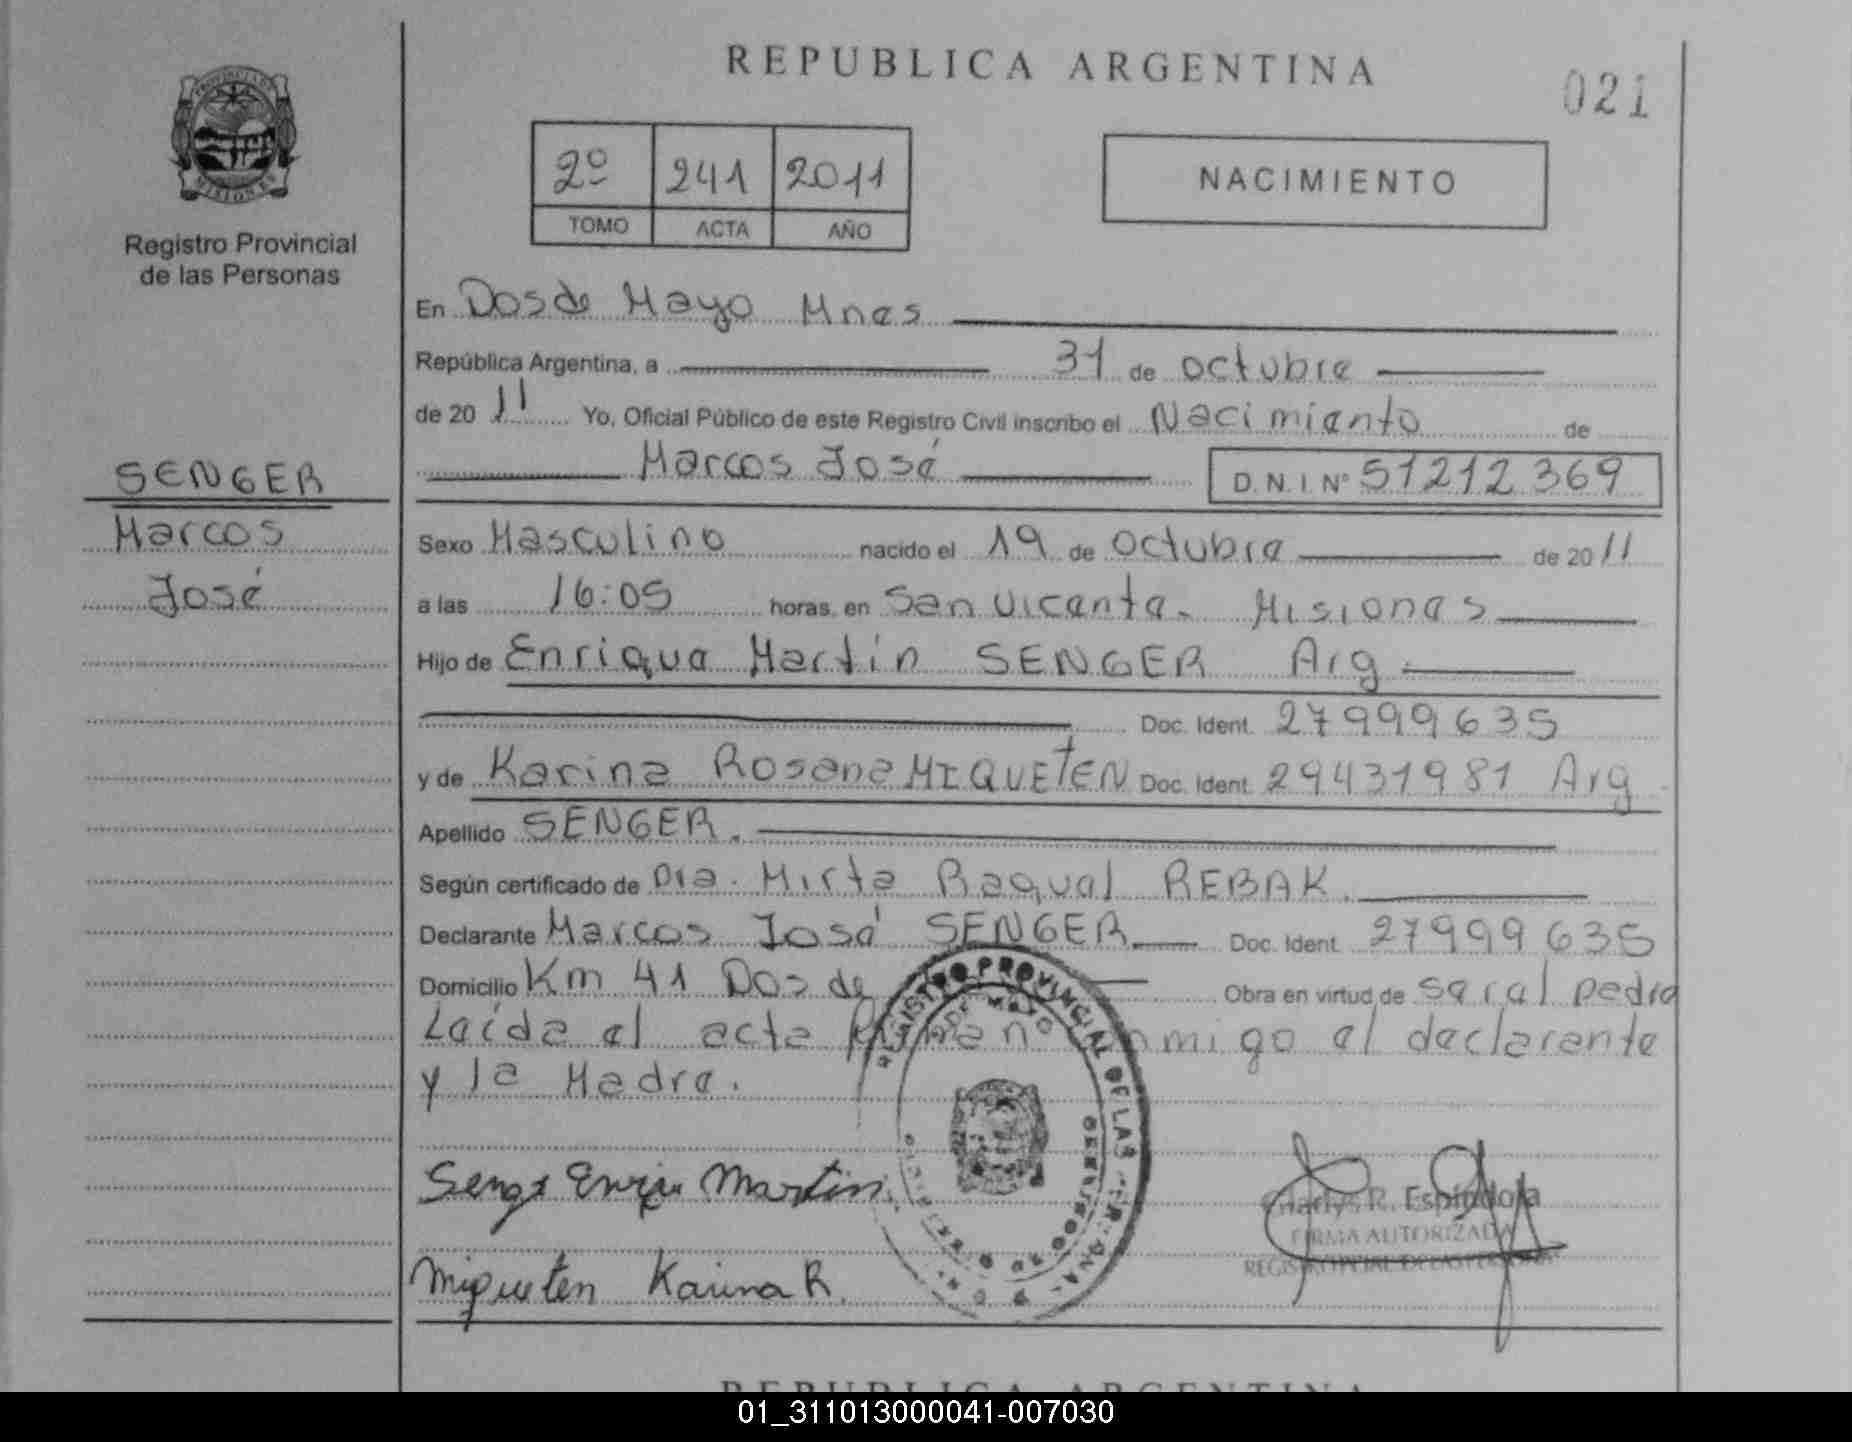 REPUBLICA ARGENTINA
021
PROVINCIA DE
MISIONES
Registro Provincial
de las Personas
2º 241 2011
TOMO ACTA AÑO
NACIMIENTO
En Dos de Mayo Mnes
República Argentina, a 31 de octubre
de 20 11 Yo, Oficial Público de este Registro Civil inscribo el Nacimiento de
Marcos José D.N.I. Nº 51212369
SENGER
Marcos
José
Sexo Masculino nacido el 19 de octubre de 20 11
a las 16:05 horas, en San Vicente. Misiones
Hijo de Enrique Martín SENGER Arg.
Doc. Ident. 27999635
y de Karina Rosana MIQUETEN Doc. Ident. 29431981 Arg
Apellido SENGER.
Según certificado de Dra. Mirta Raquel REBAK.
Declarante Marcos José SENGER Doc. Ident. 27999635
Domicilio Km 41 Dos de Obra en virtud de ser el padre
Leída el acta firman conmigo el declarante
y la Madre.
REGISTRO PROVINCIAL DE LAS PERSONAS
2 DE MAYO
Senger Enrique Martin
Miqueten Karina R.
Gladys R. Espindola
FIRMA AUTORIZADA
REGISTRO PCIAL. DE LAS PERSONAS
REPUBLICA ARGENTINA
01_311013000041-007030